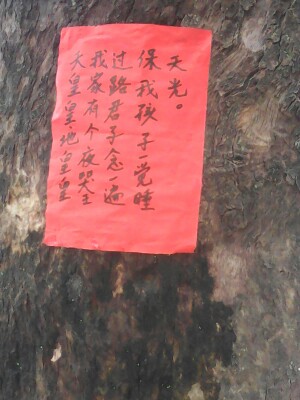 天皇皇地皇皇
我家有个夜哭主
过路君子念一遍
保我孩子一觉睡
天光。